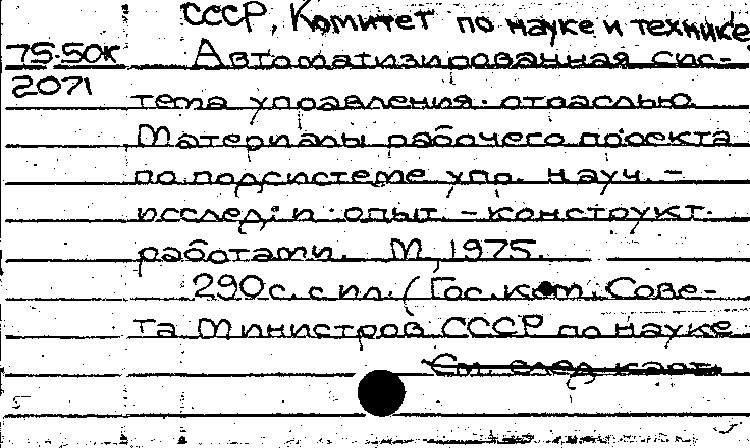 СССР, Комитет по науке и технике
75-50к Автоматизированная сис-
2071 тема управления отраслью.
Материалы рабочего проекта
по подсистеме упр. науч. -
исслед. и опыт. - конструкт.
работами. М, 1975.
290 с. с ил. (Гос. ком. Сове-
та Министров СССР по науке
См. след. карт.